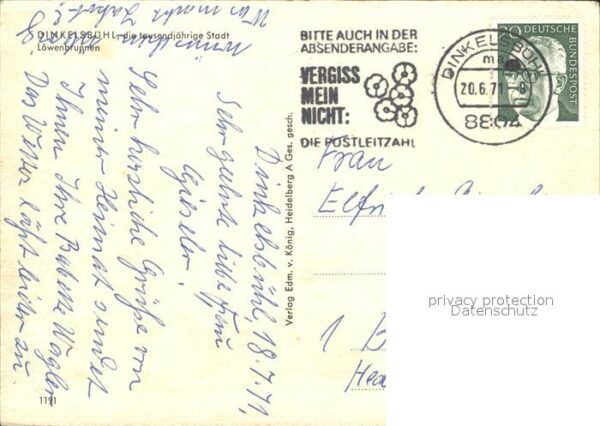 DINKELSBÜHL, die tausendjährige Stadt
Löwenbrunnen
BITTE AUCH IN DER
ABSENDERANGABE:
VERGISS
MEIN
NICHT:
DIE POSTLEITZAHL
DINKELSBÜHL
20.6.71
8804
DEUTSCHE
BUNDESPOST
Dinkelsbühl, 18.7.71,
Sehr geehrte liebe Frau
Gieseler.
Sehr herzliche Grüße von
meiner Heimat sendet
Ihnen Ihre Babette Wagler
Das Wetter läßt leider zu
Frau
1 B
Verlag Edm. v. König, Heidelberg A Ges. gesch.
1191
privacy protection
Datenschutz